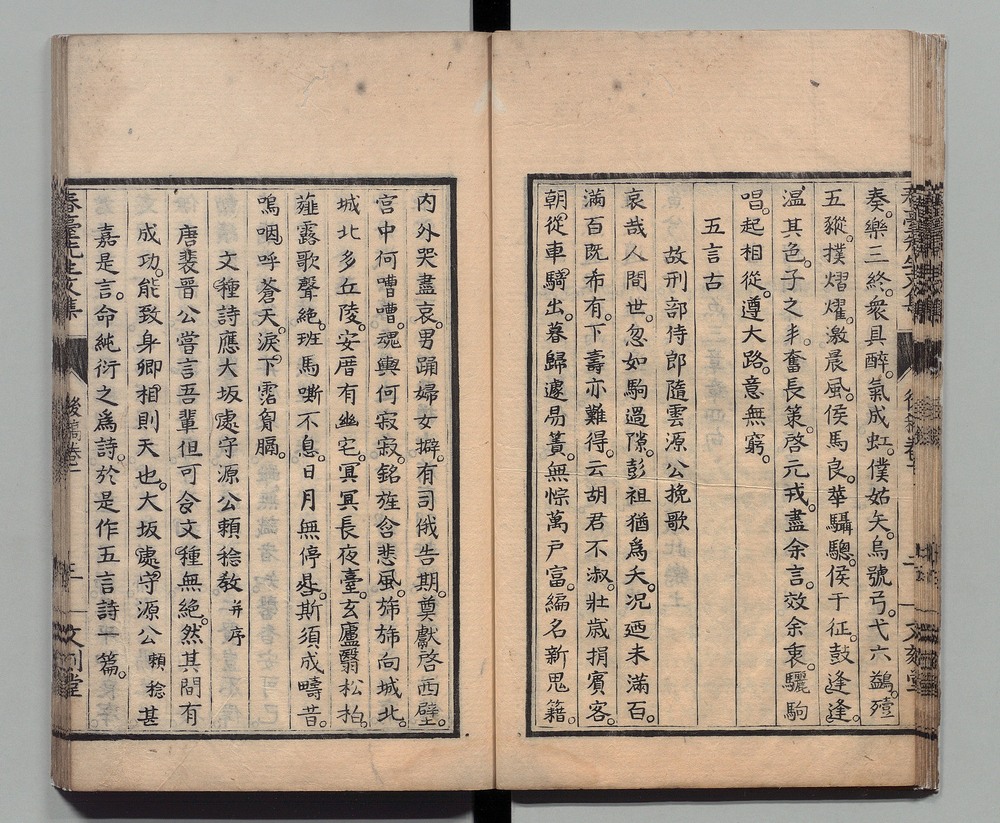 奏。樂三終。衆具醉。氣成虹。僕姤矢。烏號弓。弋六鷁。殪
五豵。撲熠燿。激晨風。侯馬良。華騮驄。侯于征。鼓逢逢。
温其色。子之丰。奮長策。啓元戎。盡余言。效余衷。驪駒
唱。起相從。遵大路。意無窮。
五言古
故刑部侍郎隨雲源公挽歌
哀哉人間世。忽如駒過隙。彭祖猶爲夭。况廼未滿百。
滿百既希有。下壽亦難得。云胡君不淑。壯歲捐賓客。
朝從車騎出。暮歸遽易簀。無悰萬戸富。編名新鬼籍。
内外哭盡哀。男踊婦女擗。有司俄告期。奠獻啓西壁。
宮中何嘈嘈。魂輿何寂寂。銘旌含悲風。旆旆向城北。
城北多丘陵。安厝有幽宅。冥冥長夜臺。玄廬翳松柏。
薤露歌聲絶。班馬嘶不息。日月無停晷。斯須成疇昔。
嗚咽呼蒼天。淚下霑胷膈。
文種詩應大坂處守源公賴稔教并序
唐裴晋公嘗言吾輩但可令文種無絶。然其間有
成功。能致身卿相則天也。大坂處守源公賴稔甚
嘉是言。命純衍之爲詩。於是作五言詩一篇。
春臺先生文集
後稿卷二
文刻堂